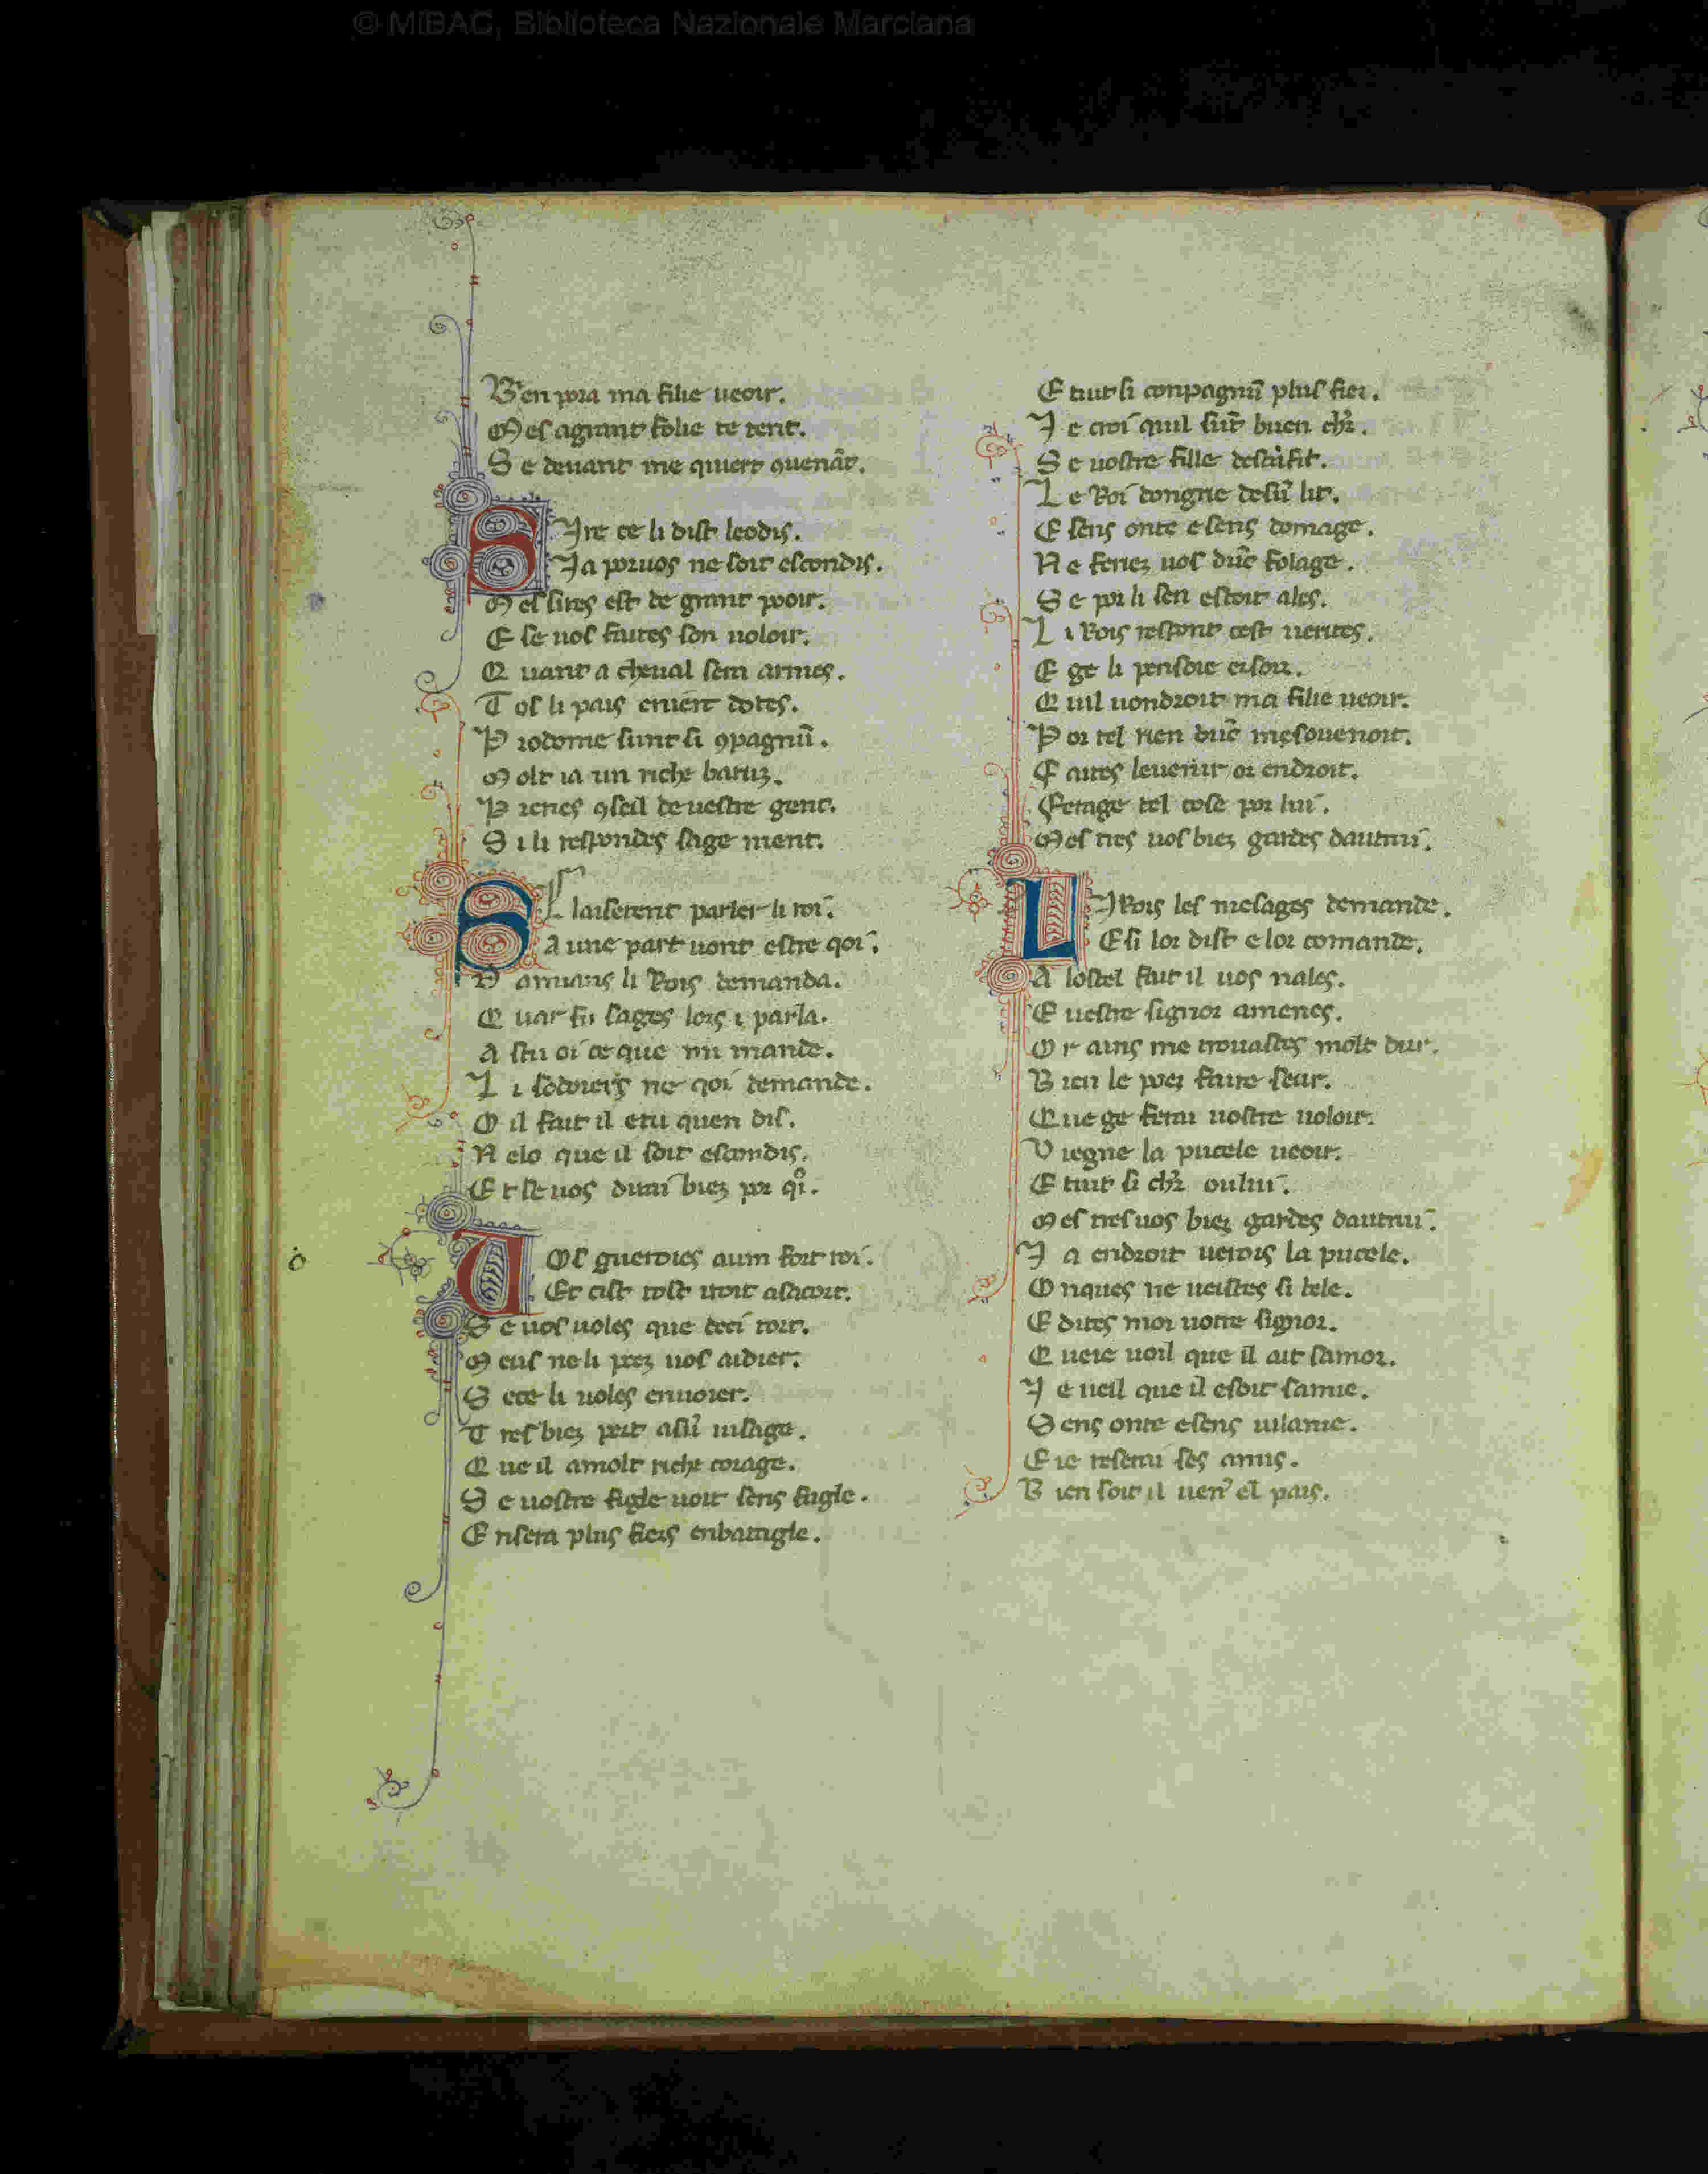 © MiBAC, Biblioteca Nazionale Marciana
Ben pora ma filie ueoir.
Mes agrant folie te tent.
Se deuant me quiert
SIre ce li dist leodis.
Ja por uos ne soit escondis.
Mes sires est de grant pooir.
E se uos faites son uoloir.
Quant a cheual sera armes.
Tos li pais ert dotes.
Prodome sunt si ꝯpagnū.
Molt ia un riche baruz.
Prenes ꝯseil de uestre gent.
Si li respondes sage ment.
laiserent parler li roi.
A une part uont estre qoi.
li Rois demanda.
Quar fu sages lors i parla.
As tu oi ce que mi mande.
Li sodoiers ne qoi demande.
Oil fait il e tu quen dis.
Nelo que il soit escondis.
Et se uos dirai biez por qi.
UOs gueroies aum fort roi.
Et cist tost uoit asacort.
Se uos uoles que deci tort.
Meus ne li poez uos aidier.
Se ce li uoles enuoier.
Tres biez pert asū uisage.
Que il amolt riche corage.
Se uostre figle uoit sens faigle.
En sera plus fiers enbataigle.
E tuit si conpagnū plus fier.
Je croi quil sūt buen chr.
Se uostre fille
Le Roi dongne desū lit.
E sens onte e sens domage.
Ne feriez uos dūc folage.
Se por li sen estoit ales.
Li Rois respont cest uerites.
E ge li pensoie ersoir.
Quil uondroit ma filie ueoir.
Por tel rien dūc mesouenoit.
Faites leuenir or endroit.
Ferage tel cose por lui.
Mes tres uos biez gardes dautrui.
LI Rois les mesages demande.
E si lor dist e lor comande.
A lostel fait il uos nales.
E uestre signor amenes.
Or ains me trouastes molt dur.
Bien le poez faire seur.
Que ge ferai uostre uoloir.
Viegne la pucele ueoir.
E tuit si chr. oului.
Mes tres uos biez gardes dautrui.
Ja endroit uerois la pucele.
Onques ne ueistes si bele.
E dites moi uotre signor.
Que ie uoil que il ait samor.
Je ueil que il esoit samie.
Sens onte e sens uilanie.
E ie reserai ses amis.
Bien soit il uen' el pais.